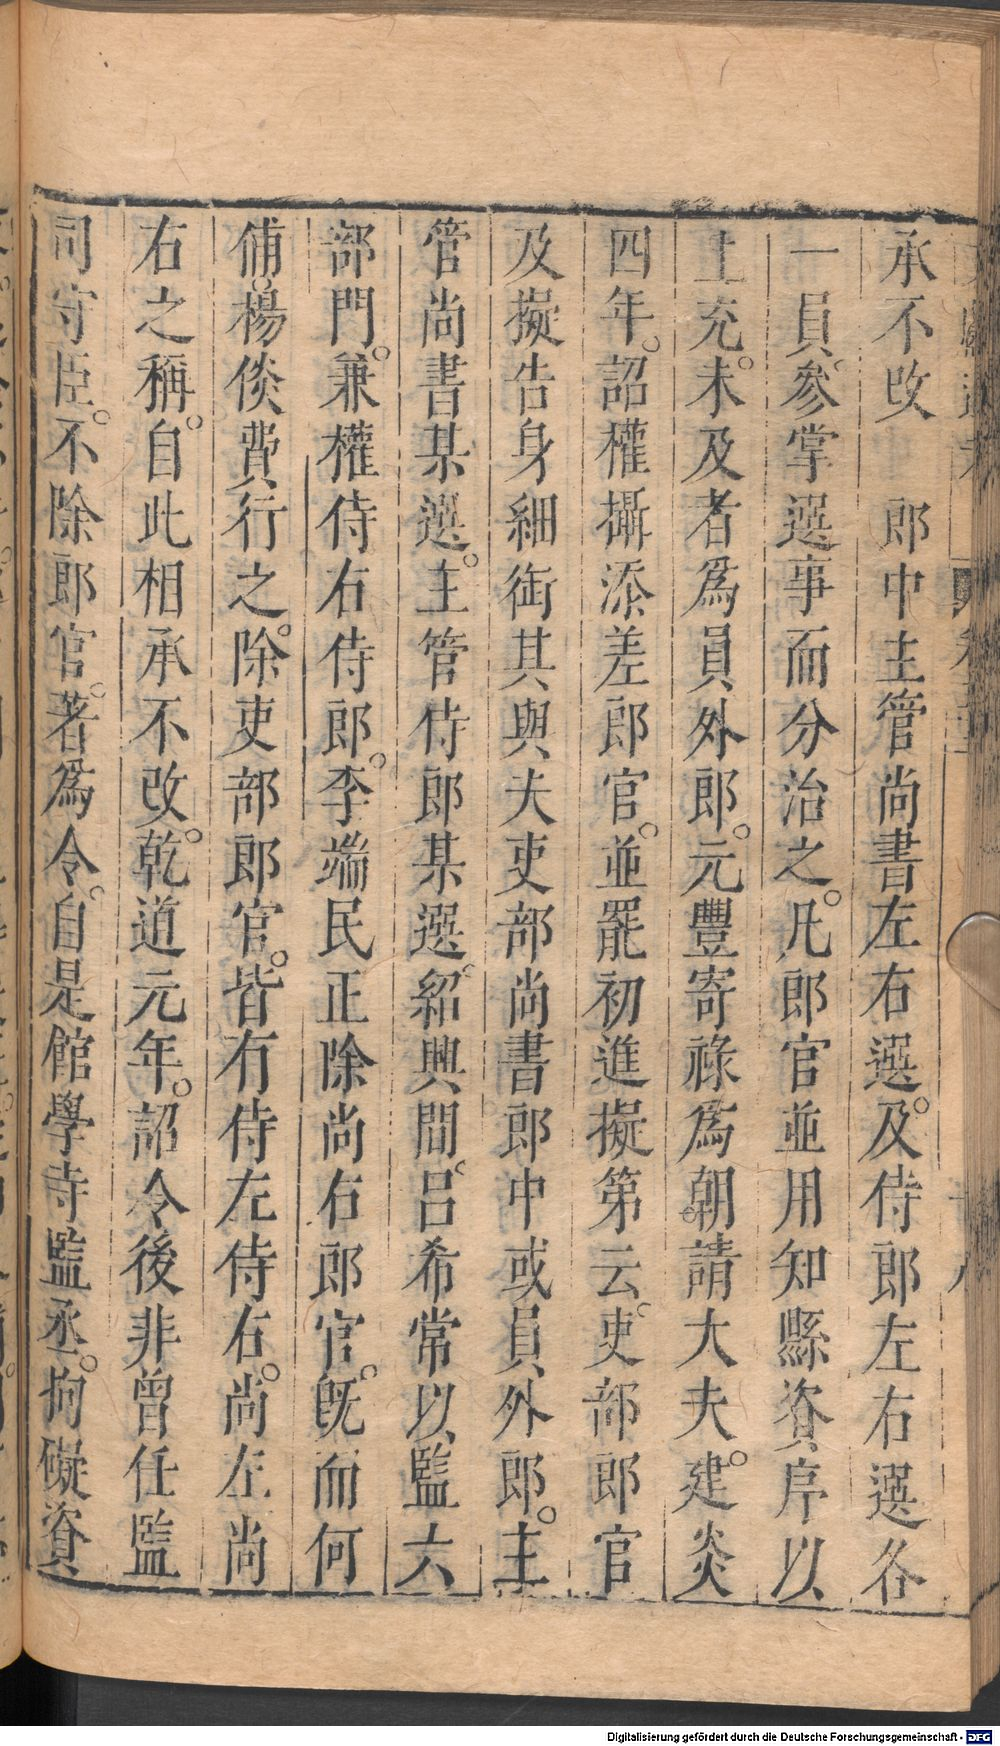 承不改　郎中主管尚書左右選。及侍郎左右選各
一員。參掌選事而分治之。凡郎官並用知縣資序以
上充。未及者爲員外郎。元豐寄祿爲朝請大夫。建炎
四年。詔權攝添差郎官。並罷初進擬第云。吏部郎官
及擬告身細銜其與夫吏部尚書郎中或員外郎。主
管尚書某選。主管侍郎某選。紹興間。呂希常以監六
部門。兼權侍右侍郎。李端民正除尚右郎官。旣而何
俌。楊倓費行之。除吏部郎官。皆有侍左侍右。尚左尚
右之稱。自此相承不改。乾道元年。詔令後非曾任監
司守臣。不除郎官。著爲令。自是館學寺監丞。拘礙資
Digitalisierung gefördert durch die Deutsche Forschungsgemeinschaft - DFG